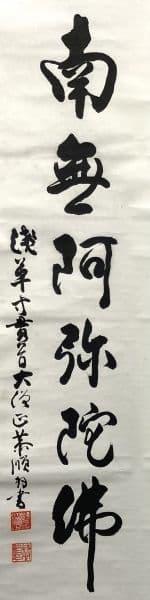 南無阿弥陀佛
浅草寺貫首大僧正恭順書